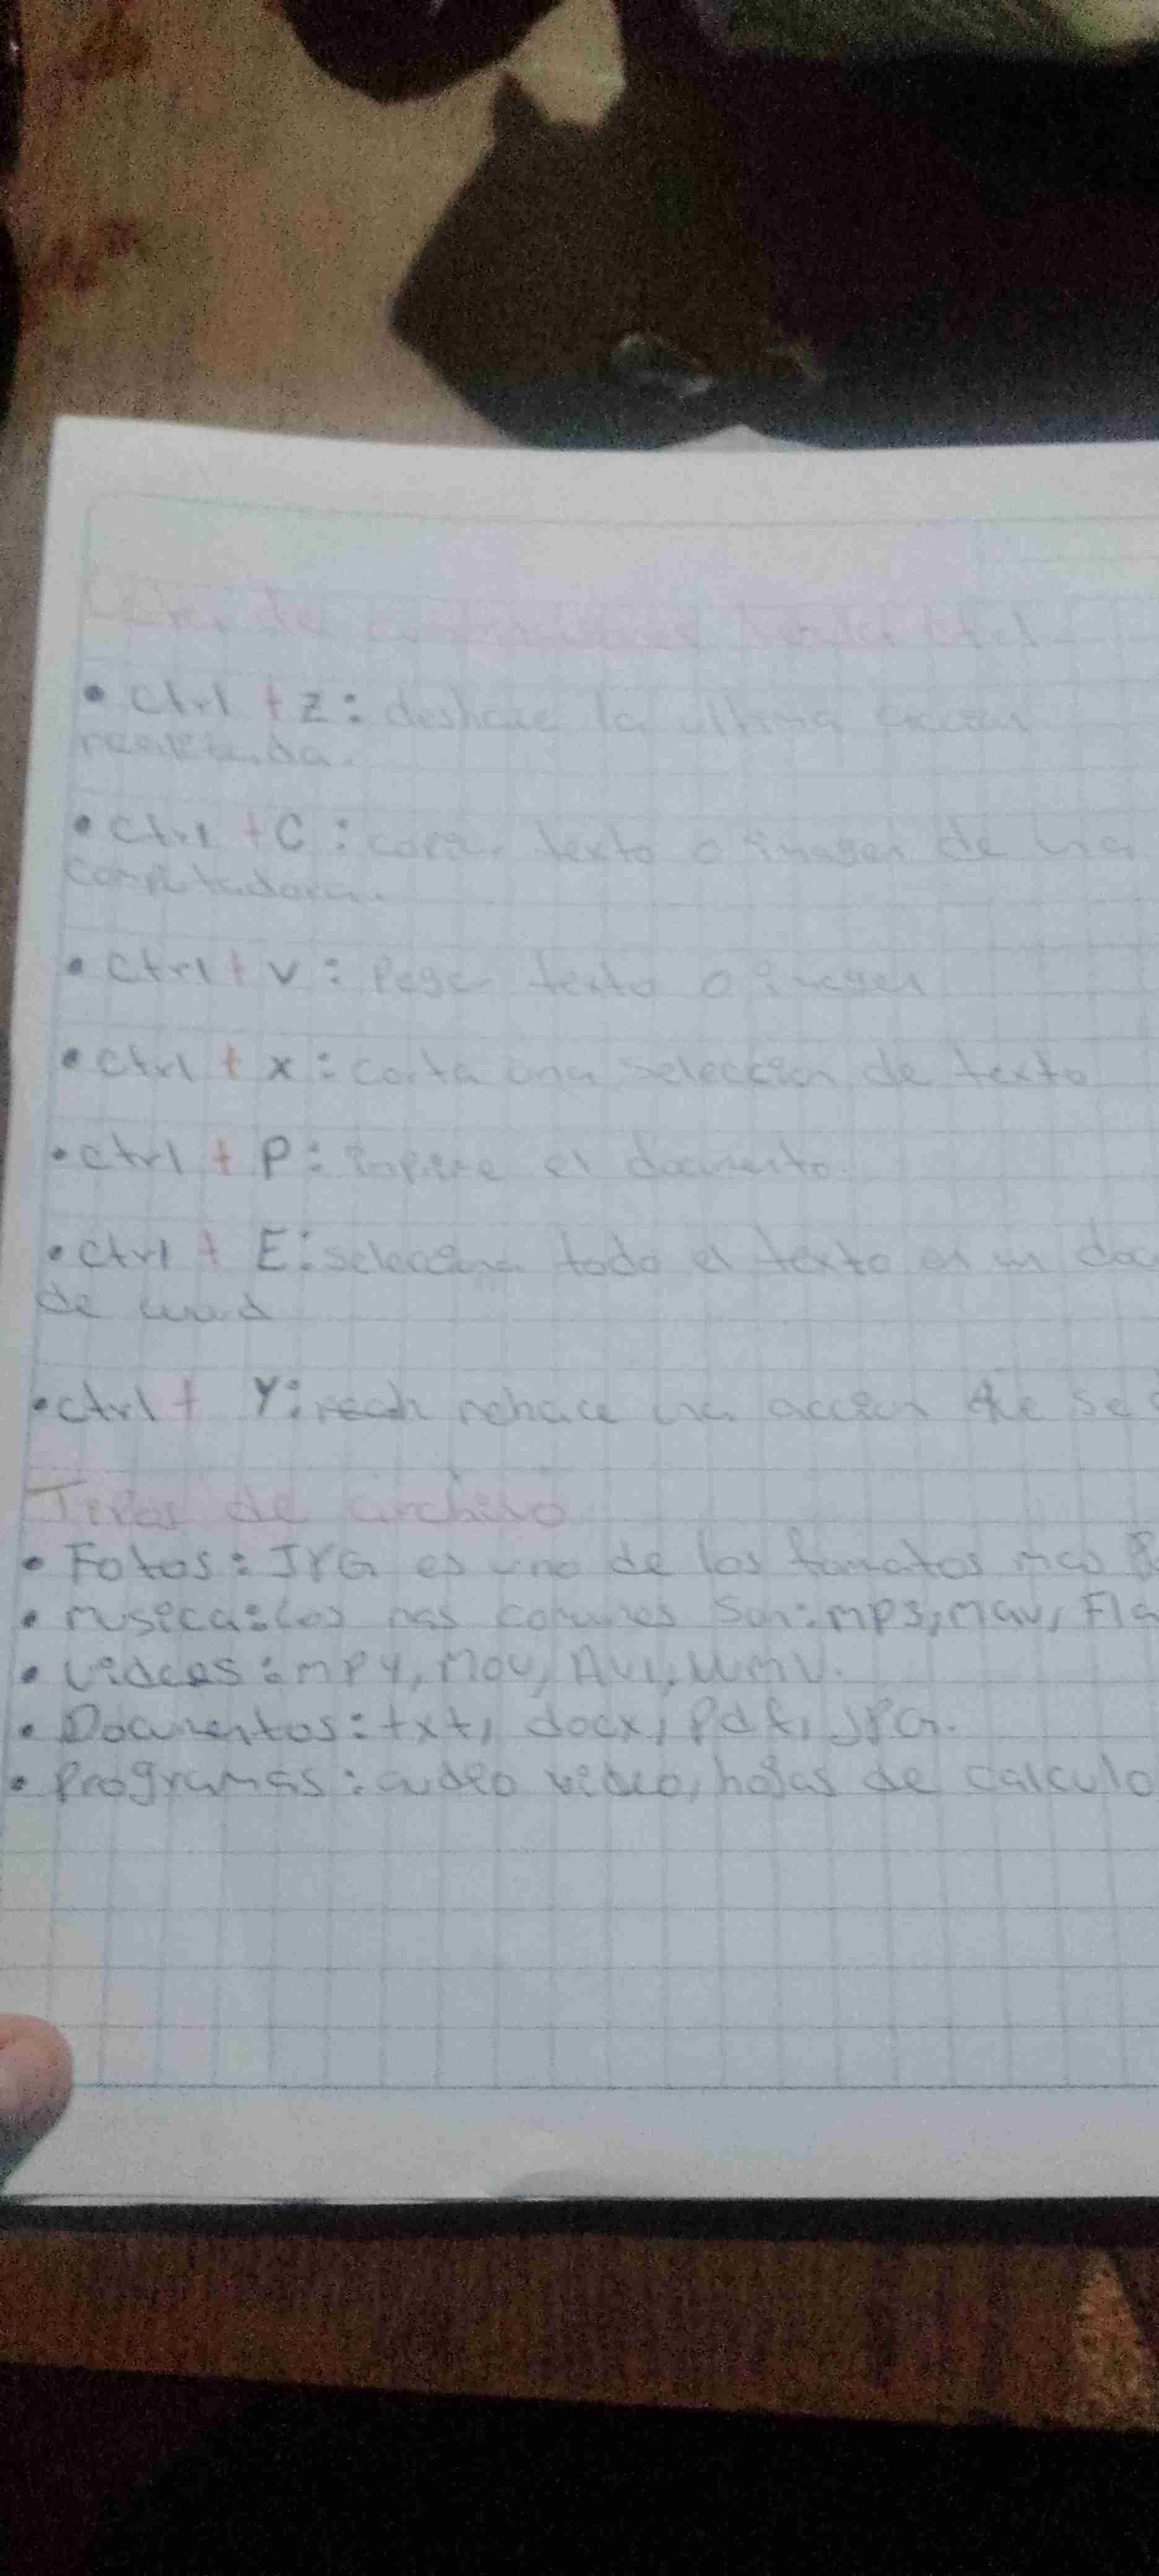 • Ctrl + Z: deshace la ultima acción
realizada.
• Ctrl + C: copiar texto o imagen de una
computadora.
• Ctrl + V: Pegar texto o imagen
• Ctrl + x: corta una selección de texto
• ctrl + P: imprime el documento.
• Ctrl + E: selecciona todo el texto en un doc
de word
• ctrl + Y: rehace una acción que se
Tipos de archivo
• Fotos: JPG es uno de los formatos mas
• musica: los mas comunes son: mp3, mav, Fla
• videos: mp4, Mov, AVI, WMV.
• Documentos: txt, docx, pdf, JPG.
• Programas: audio video, hojas de calculo